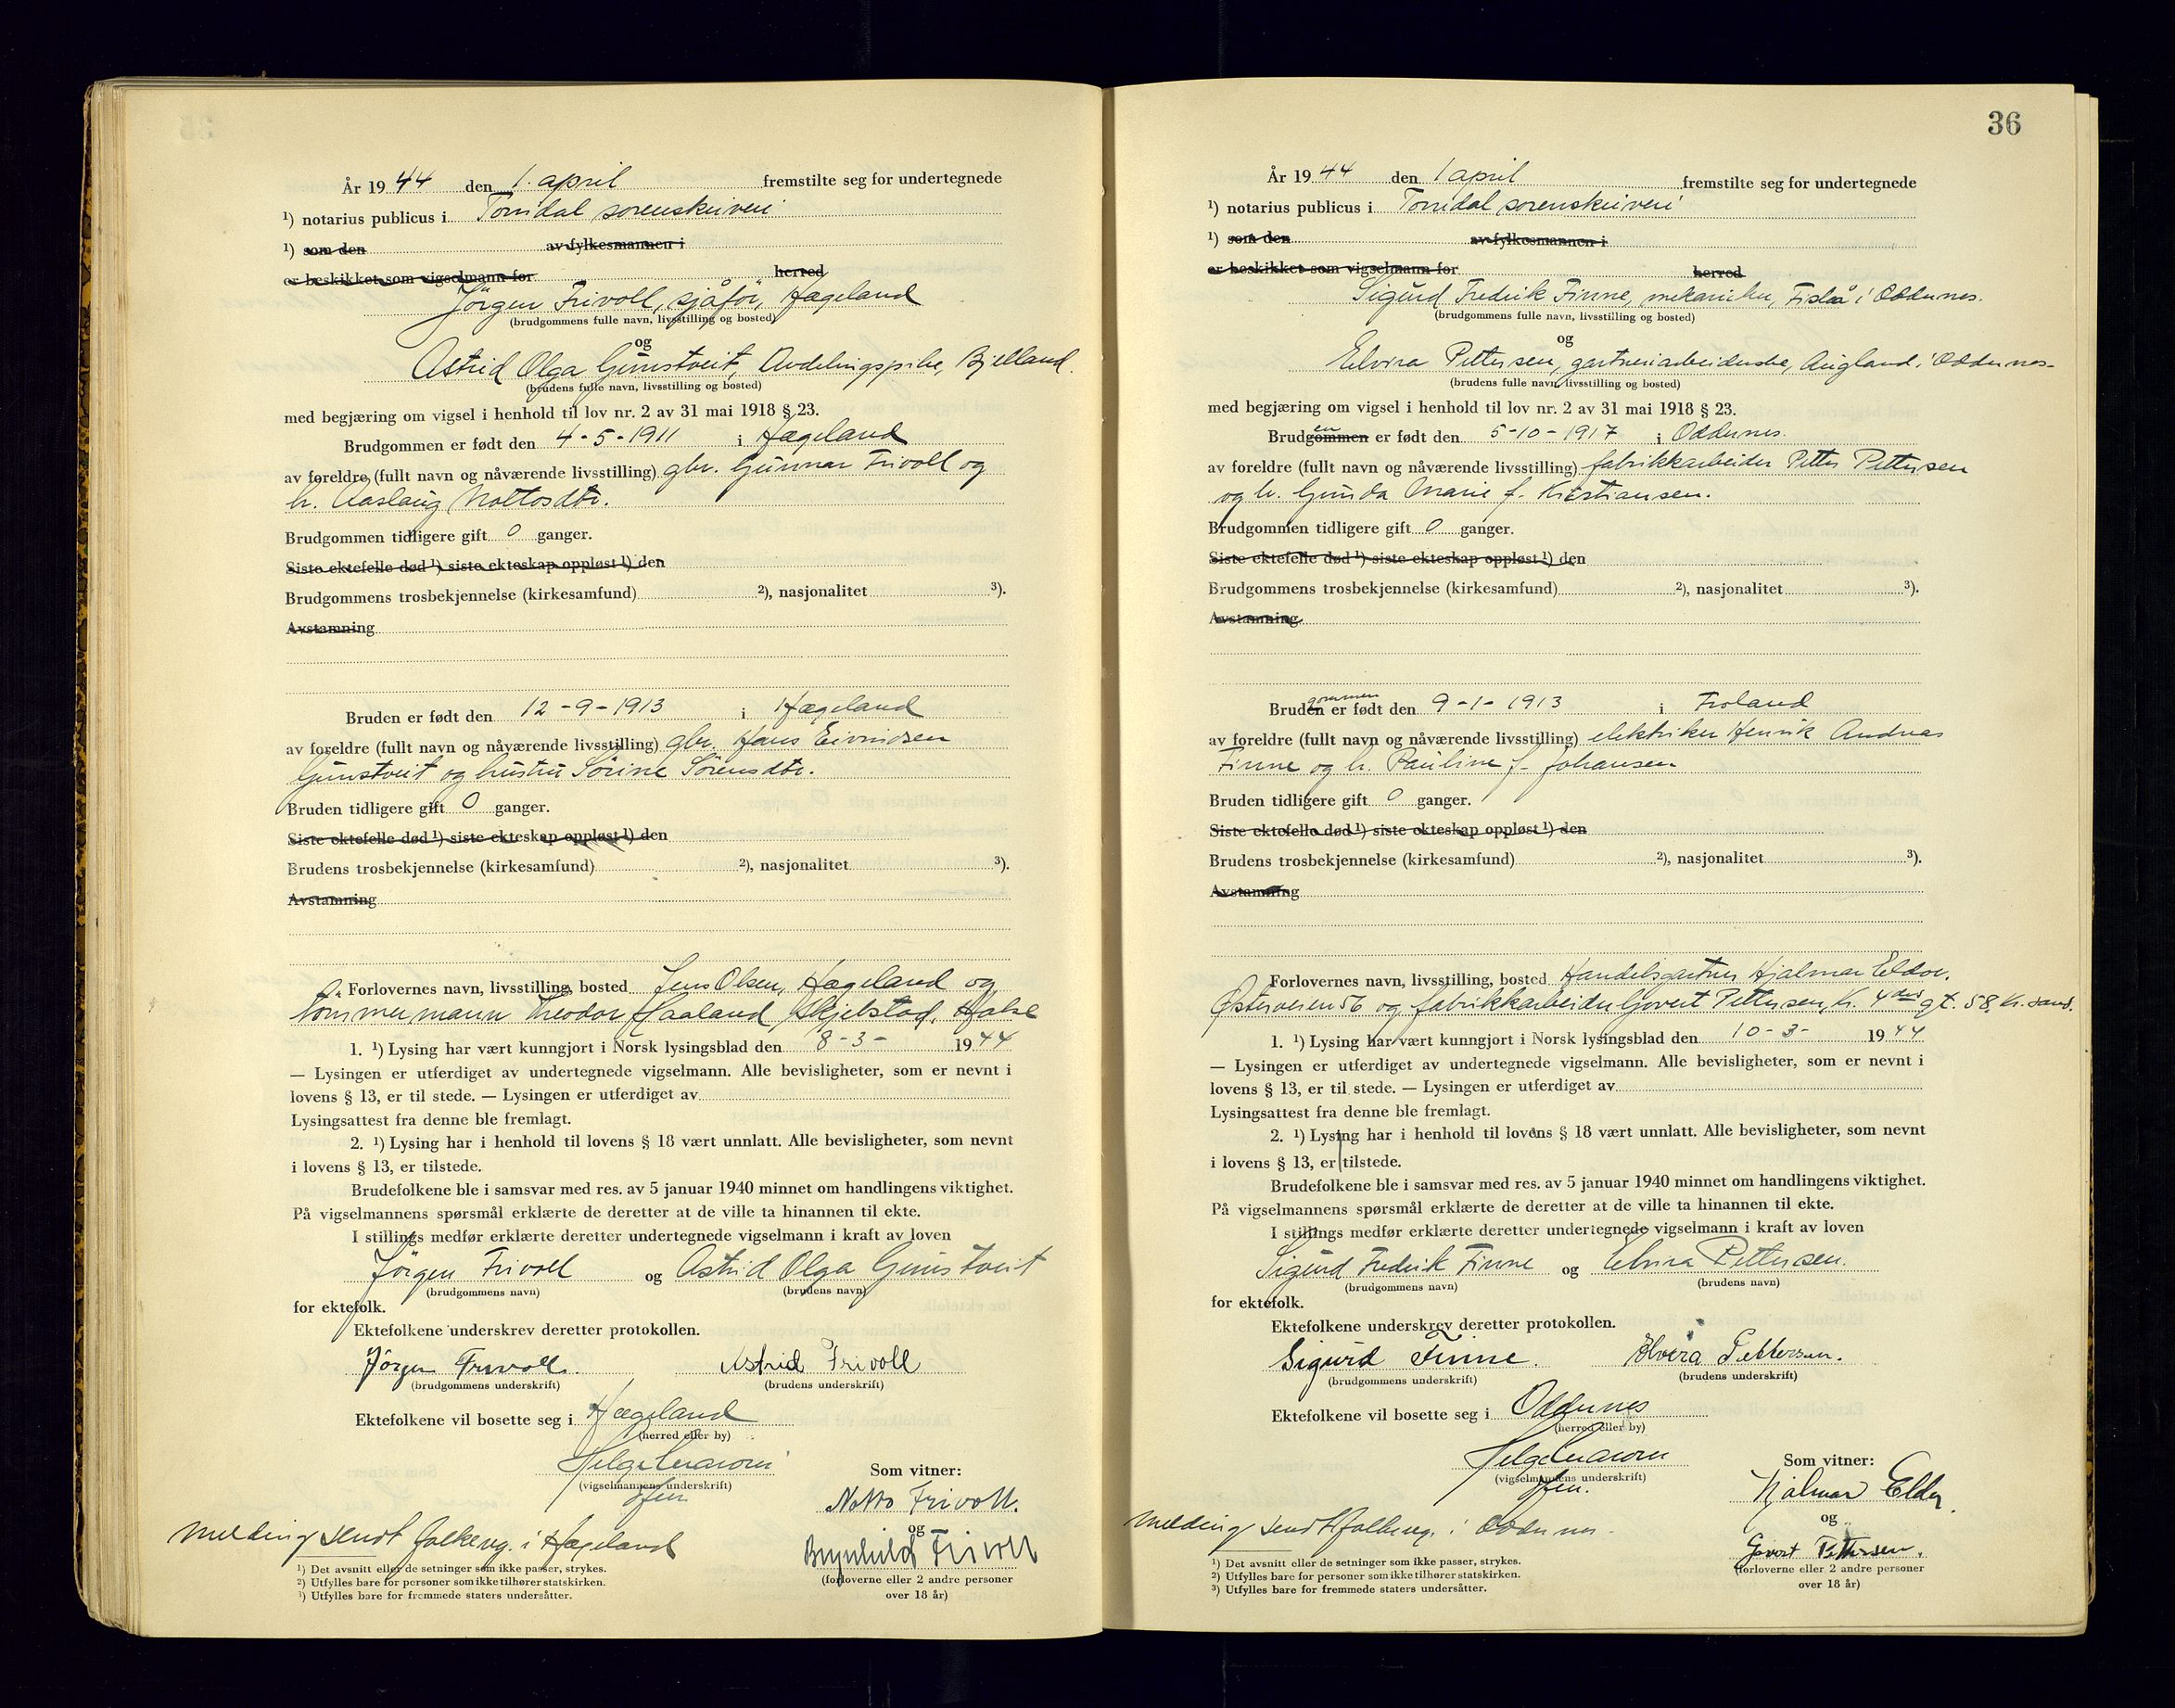 År 1944 den 1. april fremstilte seg for undertegnede
¹) notarius publicus i Torridal sorenskriveri
¹) som den av fylkesmannen i
er beskikket som vigselmann for herred
Jörgen Frivoll, sjåför, Hægeland
(brudgommens fulle navn, livsstilling og bosted)
og
Astrid Olga Gunstveit, Avdelingspike, Bjelland.
(brudens fulle navn, livsstilling og bosted)
med begjæring om vigsel i henhold til lov nr. 2 av 31 mai 1918 § 23.
Brudgommen er født den 4-5-1911 i Hægeland
av foreldre (fullt navn og nåværende livsstilling) gbr. Gunnar Frivoll og
h. Aaslaug Nottosdtr.
Brudgommen tidligere gift 0 ganger.
Siste ektefelle død ¹) siste ekteskap oppløst ¹) den
Brudgommens trosbekjennelse (kirkesamfund) ²), nasjonalitet ³).
Avstamning
Bruden er født den 12-9-1913 i Hægeland
av foreldre (fullt navn og nåværende livsstilling) gbr. Hans Eivindsen
Gunstveit og hustru Sörine Sörensdtr.
Bruden tidligere gift 0 ganger.
Siste ektefelle død ¹) siste ekteskap oppløst ¹) den
Brudens trosbekjennelse (kirkesamfund) ²), nasjonalitet ³).
Avstamning
Forlovernes navn, livsstilling, bosted Jens Olsen, Hægeland og
tömmermann Theodor Haaland, Skjelstad, Halse
1. ¹) Lysing har vært kunngjort i Norsk lysingsblad den 8-3- 1944
— Lysingen er utferdiget av undertegnede vigselmann. Alle bevisligheter, som er nevnt i
lovens § 13, er til stede. — Lysingen er utferdiget av
Lysingsattest fra denne ble fremlagt.
2. ¹) Lysing har i henhold til lovens § 18 vært unnlatt. Alle bevisligheter, som nevnt
i lovens § 13, er tilstede.
Brudefolkene ble i samsvar med res. av 5 januar 1940 minnet om handlingens viktighet.
På vigselmannens spørsmål erklærte de deretter at de ville ta hinannen til ekte.
I stillings medfør erklærte deretter undertegnede vigselmann i kraft av loven
Jörgen Frivoll og Astrid Olga Gunstveit
(brudgommens navn) (brudens navn)
for ektefolk.
Ektefolkene underskrev deretter protokollen.
Jörgen Frivoll. Astrid Frivoll
(brudgommens underskrift) (brudens underskrift)
Ektefolkene vil bosette seg i Hægeland
(herred eller by)
Helge
(vigselmannens underskrift) Som vitner:
Notto Frivoll.
og
Brynhild Frivoll
(forloverne eller 2 andre personer
over 18 år)
Melding sendt folkereg. i Hægeland
¹) Det avsnitt eller de setninger som ikke passer, strykes.
²) Utfylles bare for personer som ikke tilhører statskirken.
³) Utfylles bare for fremmede staters undersåtter.
36
År 1944 den 1 april fremstilte seg for undertegnede
¹) notarius publicus i Torridal sorenskriveri
¹) som den av fylkesmannen i
er beskikket som vigselmann for herred
Sigurd Fredrik Finne, mekaniker, Fiskå i Oddernes.
(brudgommens fulle navn, livsstilling og bosted)
og
Elvira Pettersen, gartneriarbeiderske, Augland i Oddernes.
(brudens fulle navn, livsstilling og bosted)
med begjæring om vigsel i henhold til lov nr. 2 av 31 mai 1918 § 23.
Brudgommen en er født den 5-10-1917 i Oddernes.
av foreldre (fullt navn og nåværende livsstilling) fabrikkarbeider Petter Pettersen
og h. Gunda Marie f. Kristiansen.
Brudgommen tidligere gift 0 ganger.
Siste ektefelle død ¹) siste ekteskap oppløst ¹) den
Brudgommens trosbekjennelse (kirkesamfund) ²), nasjonalitet ³).
Avstamning
Bruden gommen er født den 9-1-1913 i Froland
av foreldre (fullt navn og nåværende livsstilling) elektriker Henrik Andreas
Finne og h. Pauline f. Johansen
Bruden tidligere gift 0 ganger.
Siste ektefelle død ¹) siste ekteskap oppløst ¹) den
Brudens trosbekjennelse (kirkesamfund) ²), nasjonalitet ³).
Avstamning
Forlovernes navn, livsstilling, bosted Handelsgartner Hjalmar Eldor,
Østerveien 56 og fabrikkarbeider Govert Pettersen, Kr. 4des gt. 58, Kr.sand.
1. ¹) Lysing har vært kunngjort i Norsk lysingsblad den 10-3- 1944
— Lysingen er utferdiget av undertegnede vigselmann. Alle bevisligheter, som er nevnt i
lovens § 13, er til stede. — Lysingen er utferdiget av
Lysingsattest fra denne ble fremlagt.
2. ¹) Lysing har i henhold til lovens § 18 vært unnlatt. Alle bevisligheter, som nevnt
i lovens § 13, er tilstede.
Brudefolkene ble i samsvar med res. av 5 januar 1940 minnet om handlingens viktighet.
På vigselmannens spørsmål erklærte de deretter at de ville ta hinannen til ekte.
I stillings medfør erklærte deretter undertegnede vigselmann i kraft av loven
Sigurd Fredrik Finne og Elvira Pettersen.
(brudgommens navn) (brudens navn)
for ektefolk.
Ektefolkene underskrev deretter protokollen.
Sigurd Finne. Elvira Pettersen.
(brudgommens underskrift) (brudens underskrift)
Ektefolkene vil bosette seg i Oddernes
(herred eller by)
Helge
(vigselmannens underskrift) Som vitner:
Hjalmar Eldor
og
Govert Pettersen.
(forloverne eller 2 andre personer
over 18 år)
Melding sendt folkereg. i Oddernes
¹) Det avsnitt eller de setninger som ikke passer, strykes.
²) Utfylles bare for personer som ikke tilhører statskirken.
³) Utfylles bare for fremmede staters undersåtter.